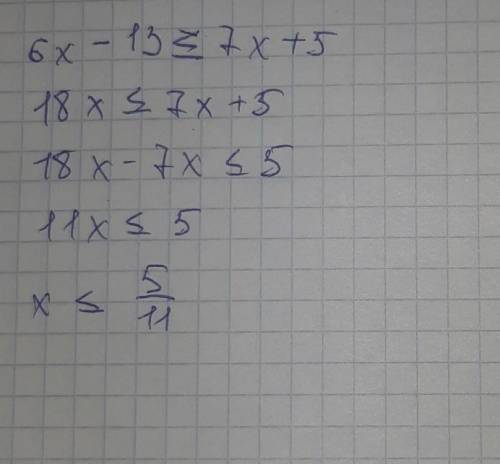 6x - 13 ≤ 7x + 5
18x ≤ 7x + 5
18x - 7x ≤ 5
11x ≤ 5
x ≤ 5/11